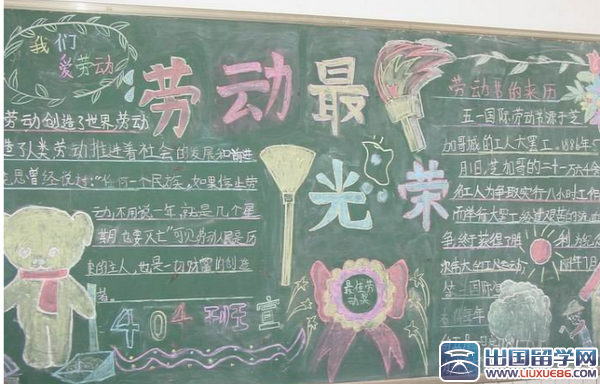 我们
爱劳动
劳动最
光荣
劳动创造了世界,劳动
造了人类劳动推进着社会的发展和前进
思曾经说过:“任何一个民族,如果停止劳
动,不用说一年,就是几个星
期,也要灭亡”可见劳动人民是历
史的主人,也是一切财富的创造
者。
404班宣
最佳劳
动奖
劳动节的来历
五一国际劳动节源于芝
加哥城的工人大罢工。1886年5
月1日,芝加哥的二十一万六千余
名工人为争取实行八小时工作
而举行大罢工,经过艰苦的流血
争,终于获得了胜利。为纪念
次伟大的工人运动,
7月
国际
出国留学网
WWW.LIUXUE86.COM